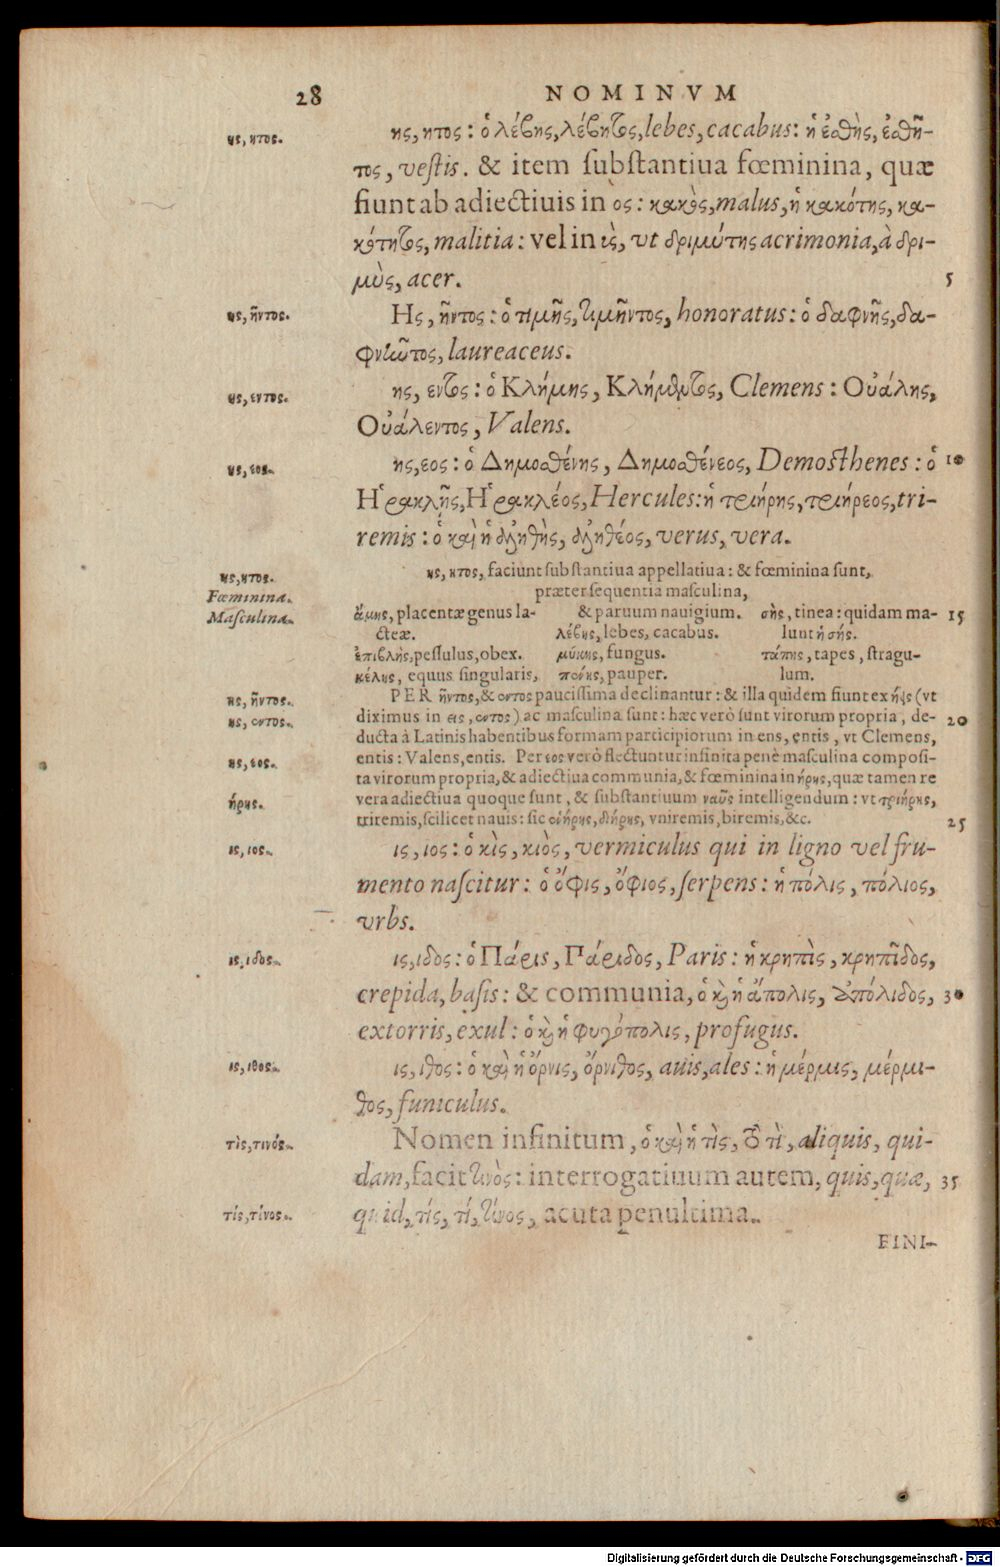 28 NOMINVM
ης, ητος. ης, ητος: ὁ λέβης, λέβητος, lebes, cacabus: ἡ ἐσθὴς, ἐσθῆ-
τος, vestis. & item substantiua fœminina, quæ
fiunt ab adiectiuis in ος: κακὸς, malus, ἡ κακότης, κα-
κότητος, malitia: vel in ὺς, vt δριμύτης acrimonia, à δρι-
μὺς, acer. 5
ης, ῆντος. Ης, ῆντος: ὁ τιμῆς, τιμῆντος, honoratus: ὁ δαφνῆς, δα-
φνῶτος, laureaceus.
ης, εντος. ης, εντος: ὁ Κλήμης, Κλήμεντος, Clemens: Οὐάλης,
Οὐάλεντος, Valens.
ης, εος. ης, εος: ὁ Δημοσθένης, Δημοσθένεος, Demosthenes: ὁ 10
Ἡρακλῆς, Ἡρακλέος, Hercules: ἡ τριήρης, τριήρεος, tri-
remis: ὁ καὶ ἡ ἀληθὴς, ἀληθέος, verus, vera.
ης, ητος. ης, ητος, faciunt substantiua appellatiua: & fœminina sunt,
Fœminina. præter sequentia masculina,
Masculina. ἄμης, placentæ genus la- & paruum nauigium. σὴς, tinea: quidam ma- 15
cteæ. λέβης, lebes, cacabus. lunt ἡ σής.
ἐπιβλὴς, pessulus, obex. μύκης, fungus. τάπης, tapes, stragu-
κέλης, equus singularis, πένης, pauper. lum.
ης, ῆντος. PER ῆντος, & οντος paucissima declinantur: & illa quidem fiunt ex ήεις (vt
ης, οντος. diximus in εις, οντος) ac masculina sunt: hæc verò sunt virorum propria, de- 20
ducta à Latinis habentibus formam participiorum in ens, entis, vt Clemens,
ης, εος. entis: Valens, entis. Per εος verò flectuntur infinita penè masculina composi-
ta virorum propria, & adiectiua communia, & fœminina in ήρης, quæ tamen re
ήρης. vera adiectiua quoque sunt, & substantiuum ναῦς intelligendum: vt τριήρης,
triremis, scilicet nauis: sic οἰήρης, διήρης, vniremis, biremis, &c. 25
ις, ιος. ις, ιος: ὁ κὶς, κιὸς, vermiculus qui in ligno vel fru-
mento nascitur: ὁ ὄφις, ὄφιος, serpens: ἡ πόλις, πόλιος,
vrbs.
ις, ιδος. ις, ιδος: ὁ Πάρις, Πάριδος, Paris: ἡ κρηπὶς, κρηπῖδος,
crepida, basis: & communia, ὁ καὶ ἡ ἄπολις, ἀπόλιδος, 30
extorris, exul: ὁ καὶ ἡ φυγόπολις, profugus.
ις, ιθος. ις, ιθος: ὁ καὶ ἡ ὄρνις, ὄρνιθος, auis, ales: ἡ μέρμις, μέρμι-
θος, funiculus.
τὶς, τινός. Nomen infinitum, ὁ καὶ ἡ τὶς, τὸ τὶ, aliquis, qui-
dam, facit τινὸς: interrogatiuum autem, quis, quæ, 35
τίς, τίνος. quid, τίς, τί, τίνος, acuta penultima.
FINI-
Digitalisierung gefördert durch die Deutsche Forschungsgemeinschaft - DFG